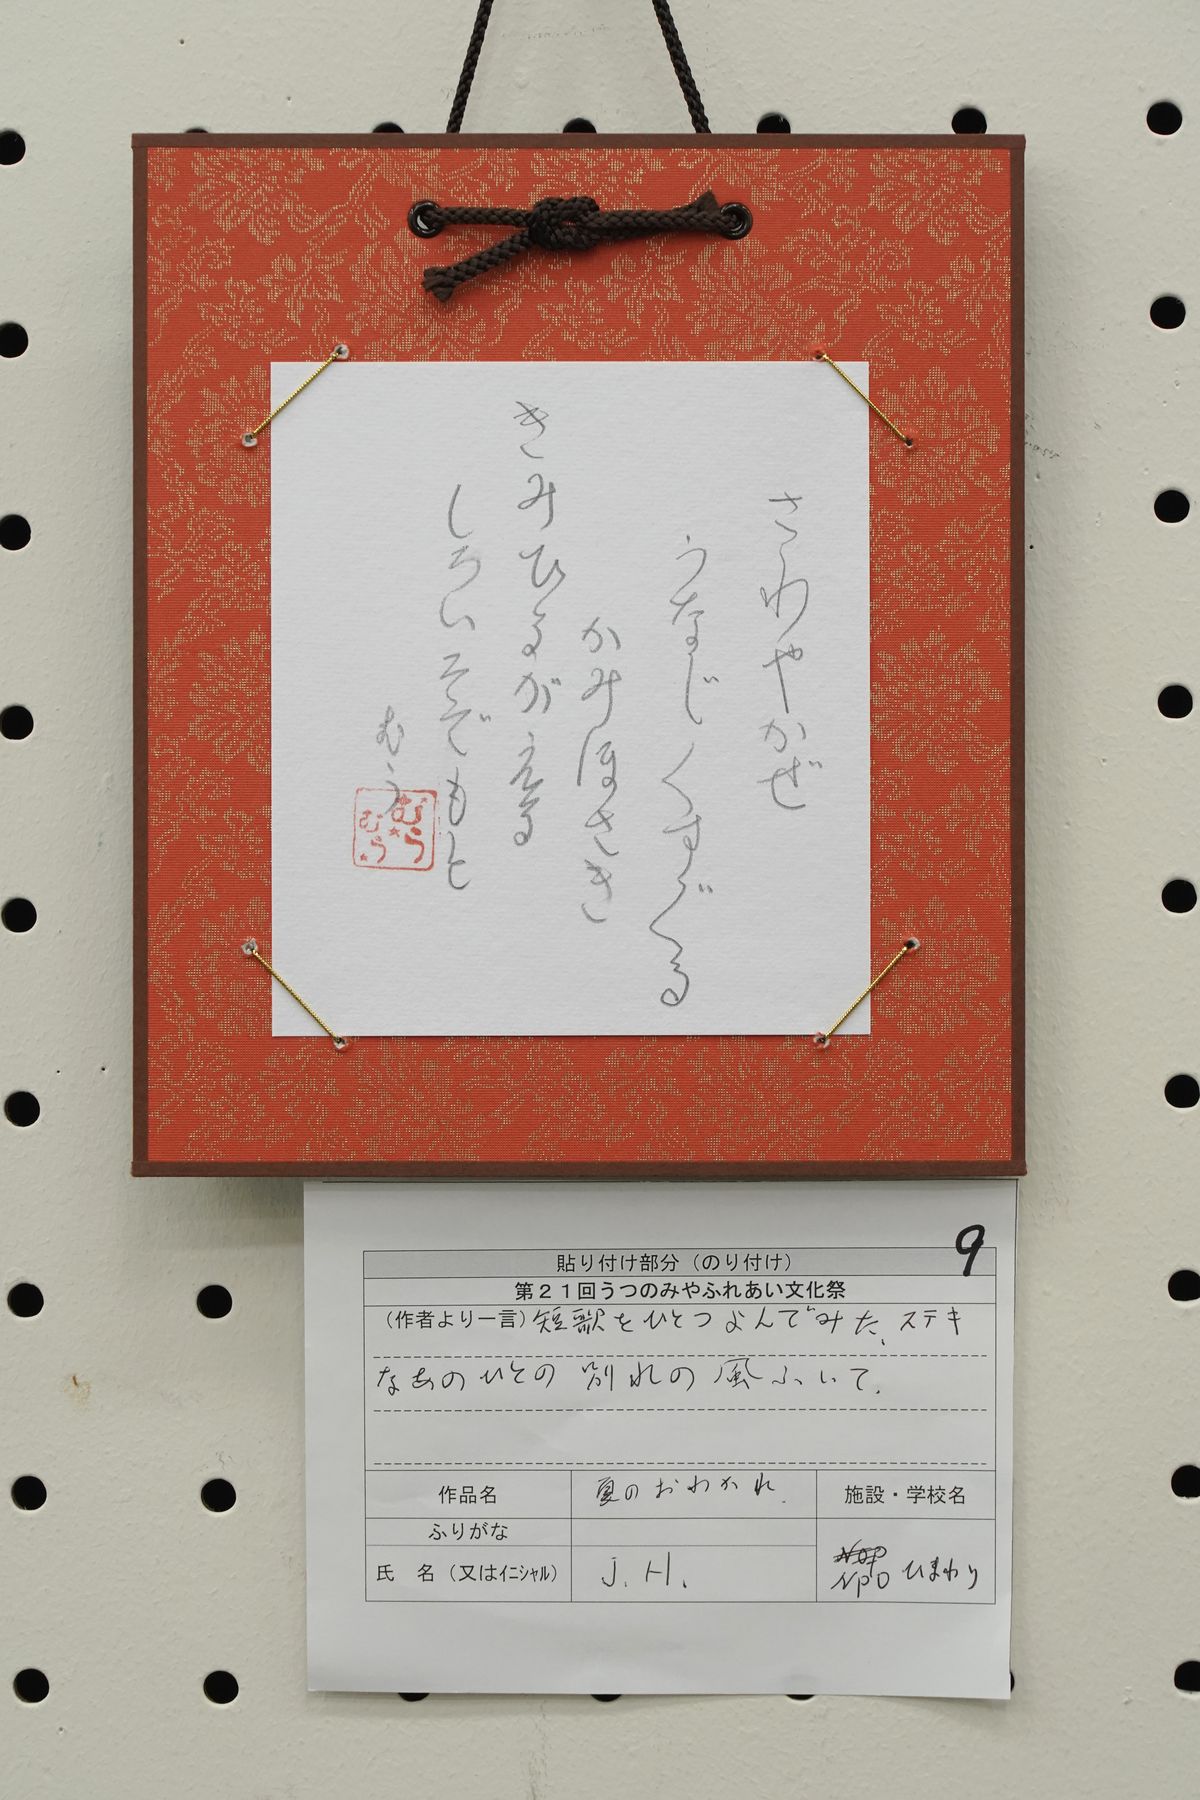 さわやかぜ
うなじくすぐる
かみほさき
きみひるがえる
しろいそでもと
むう
むう
むう
9
貼り付け部分（のり付け）
第２１回うつのみやふれあい文化祭
（作者より一言）短歌をひとつよんでみた、ステキ
なあのひとの別れの風ふいて、
作品名 夏のおわかれ 施設・学校名
ふりがな
氏　名（又はｲﾆｼｬﾙ） J.H. NPO ひまわり